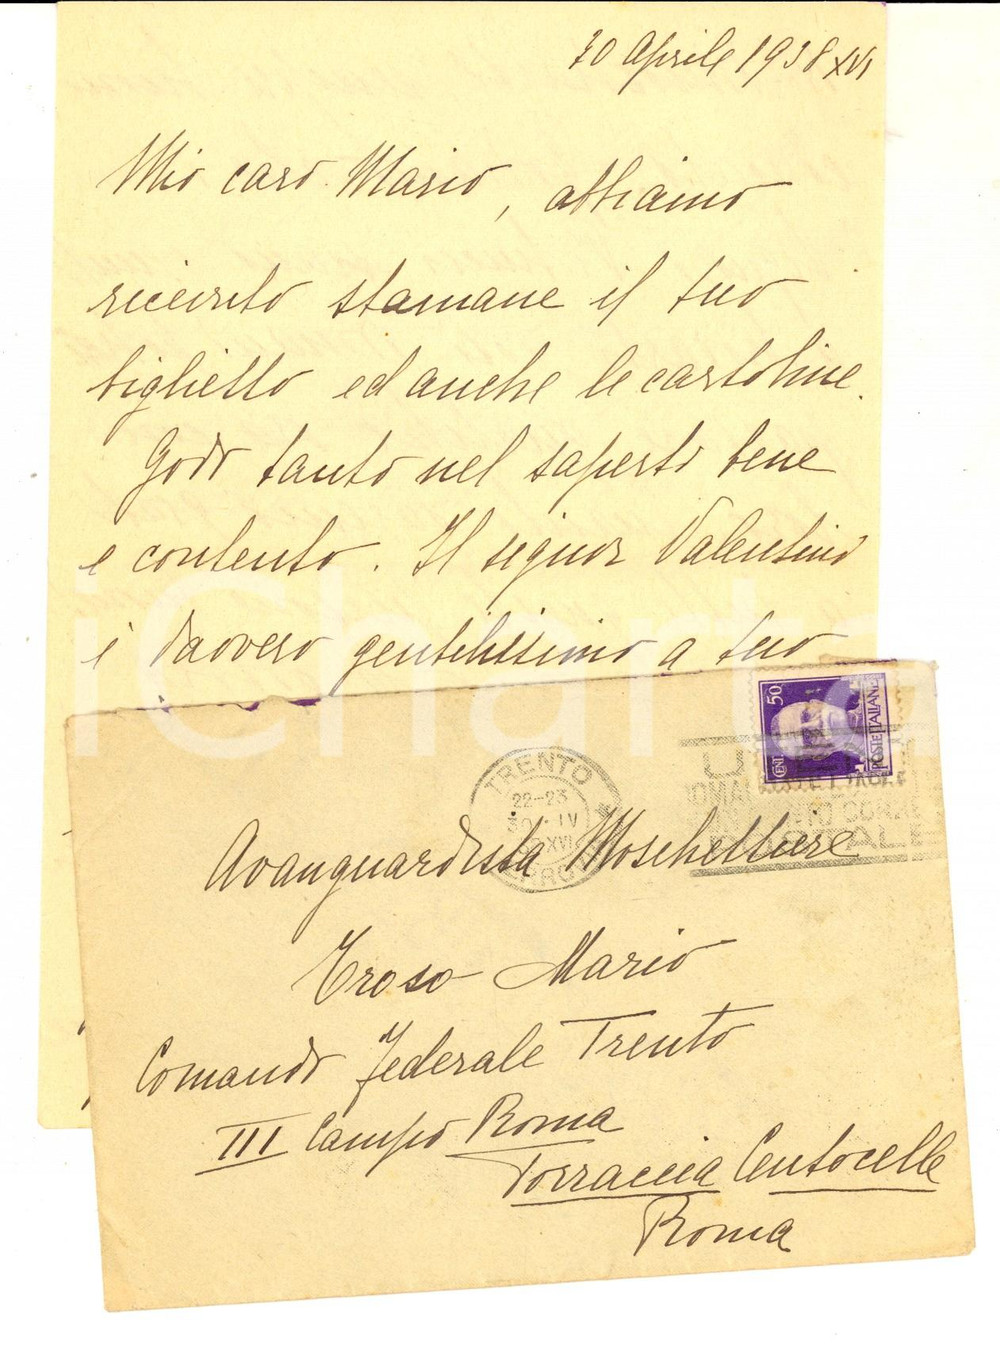 30 Aprile 1938 XVI
Mio caro Mario, abbiamo
ricevuto stamane il tuo
biglietto ed anche le cartoline.
Godo tanto nel saperti bene
e contento. Il signor Valentino
è davvero gentilissimo a tuo
iCharta
CENT 50
POSTE ITALIANE
TRENTO
22-23
30 IV
XVI
Avanguardista Moschettiere
Troso Mario
Comando Federale Trento
III Campo Roma
Torraccia Centocelle
Roma